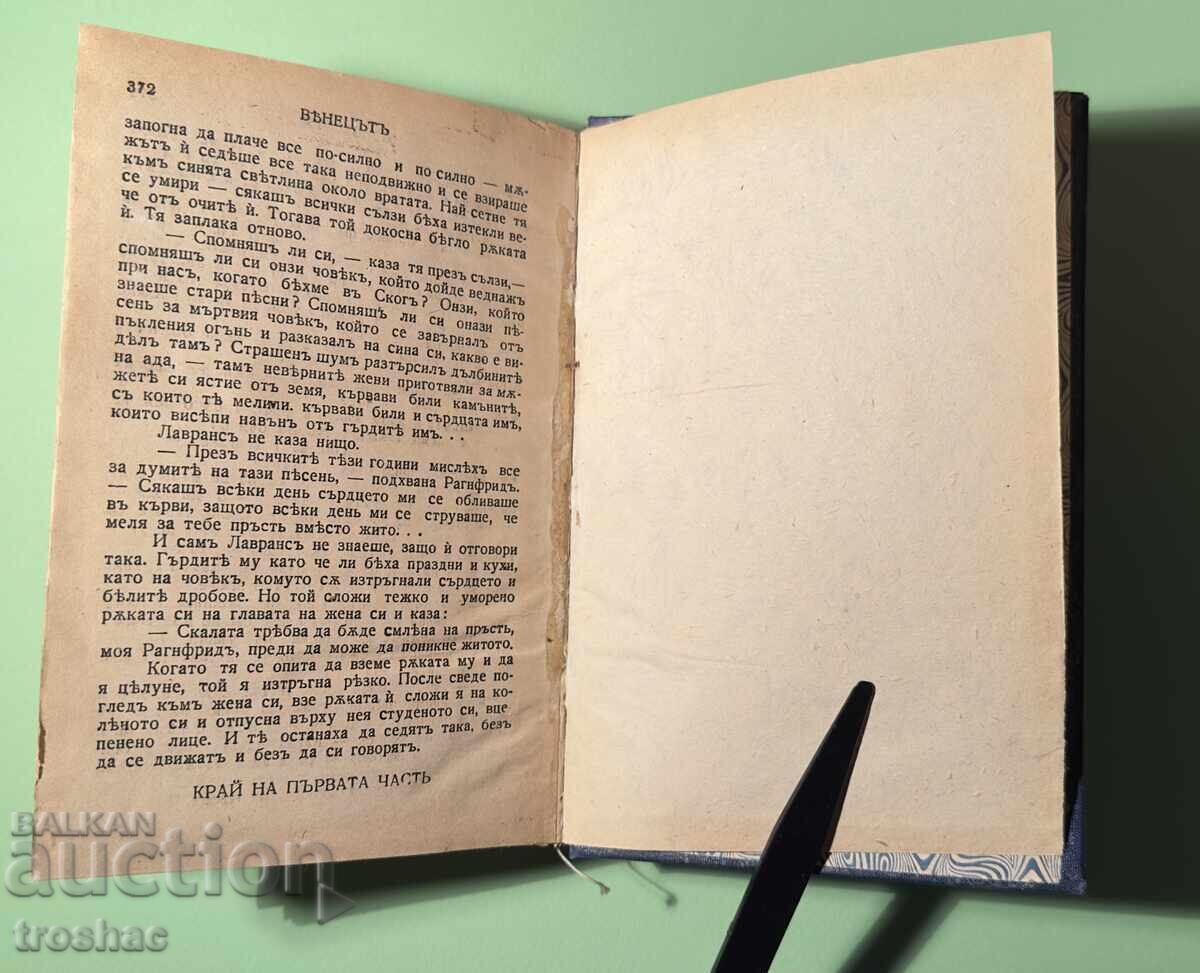 372
ВѢНЕЦЪТЪ
запогна да плаче все по-силно и по силно — мѫ-
жътъ ѝ седѣше все така неподвижно и се взираше
къмъ синята свѣтлина около вратата. Най сетне тя
се умири — сякашъ всички сълзи бѣха изтекли ве-
че отъ очитѣ ѝ. Тогава той докосна бѣгло рѫката
ѝ. Тя заплака отново.
— Спомняшъ ли си, — каза тя презъ сълзи,—
спомняшъ ли си онзи човѣкъ, който дойде веднажъ
при насъ, когато бѣхме въ Скогъ? Онзи, който
знаеше стари пѣсни? Спомняшъ ли си онази пѣ-
сень за мъртвия човѣкъ, който се завърналъ отъ
пъкления огънь и разказалъ на сина си, какво е ви-
дѣлъ тамъ? Страшенъ шумъ разтърсилъ дълбинитѣ
на ада, — тамъ невѣрнитѣ жени приготвяли за мѫ-
жетѣ си ястие отъ земя, кървави били камънитѣ,
съ които тѣ мелили. кървави били и сърдцата имъ,
които висѣли навънъ отъ гърдитѣ имъ. . .
Лаврансъ не каза нищо.
— Презъ всичкитѣ тѣзи години мислѣхъ все
за думитѣ на тази пѣсень, — подхвана Рагнфридъ.
— Сякашъ всѣки день сърдцето ми се обливаше
въ кърви, защото всѣки день ми се струваше, че
меля за тебе пръсть вмѣсто жито. . .
И самъ Лаврансъ не знаеше, защо ѝ отговори
така. Гърдитѣ му като че ли бѣха праздни и кухи,
като на човѣкъ, комуто сѫ изтръгнали сърдцето и
бѣлитѣ дробове. Но той сложи тежко и уморено
рѫката си на главата на жена си и каза:
— Скалата трѣбва да бѫде смлѣна на пръсть,
моя Рагнфридъ, преди да може да поникне житото.
Когато тя се опита да вземе рѫката му и да
я цѣлуне, той я изтръгна рѣзко. После сведе по-
гледъ къмъ жена си, взе рѫката ѝ сложи я на ко-
лѣното си и отпусна върху нея студеното си, вце
пенено лице. И тѣ останаха да седятъ така, безъ
да се движатъ и безъ да си говорятъ.
КРАЙ НА ПЪРВАТА ЧАСТЬ
BALKAN
auction
troshac